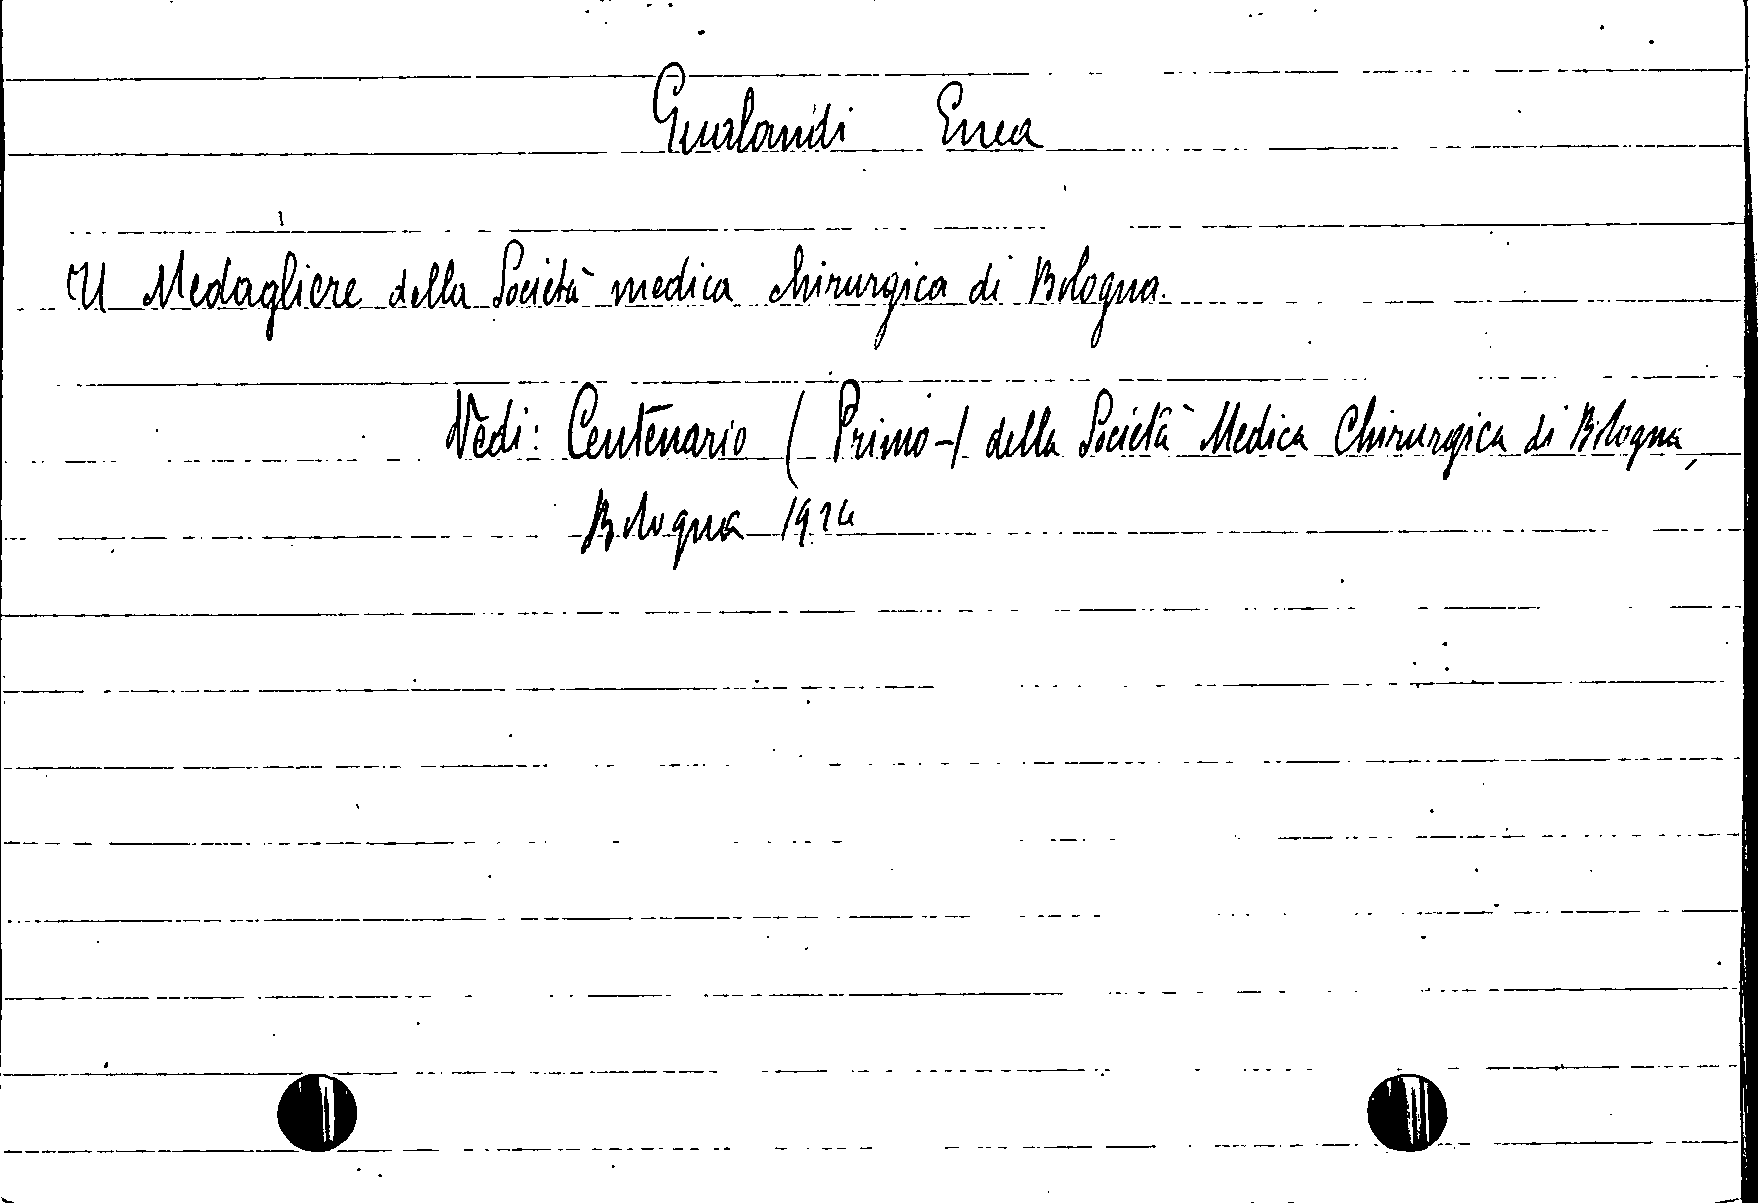 Gualandi Enea
Il Medagliere della Società medica chirurgica di Bologna.
Vedi: Centenario (Primo-) della Società Medica Chirurgica di Bologna,
Bologna 1924